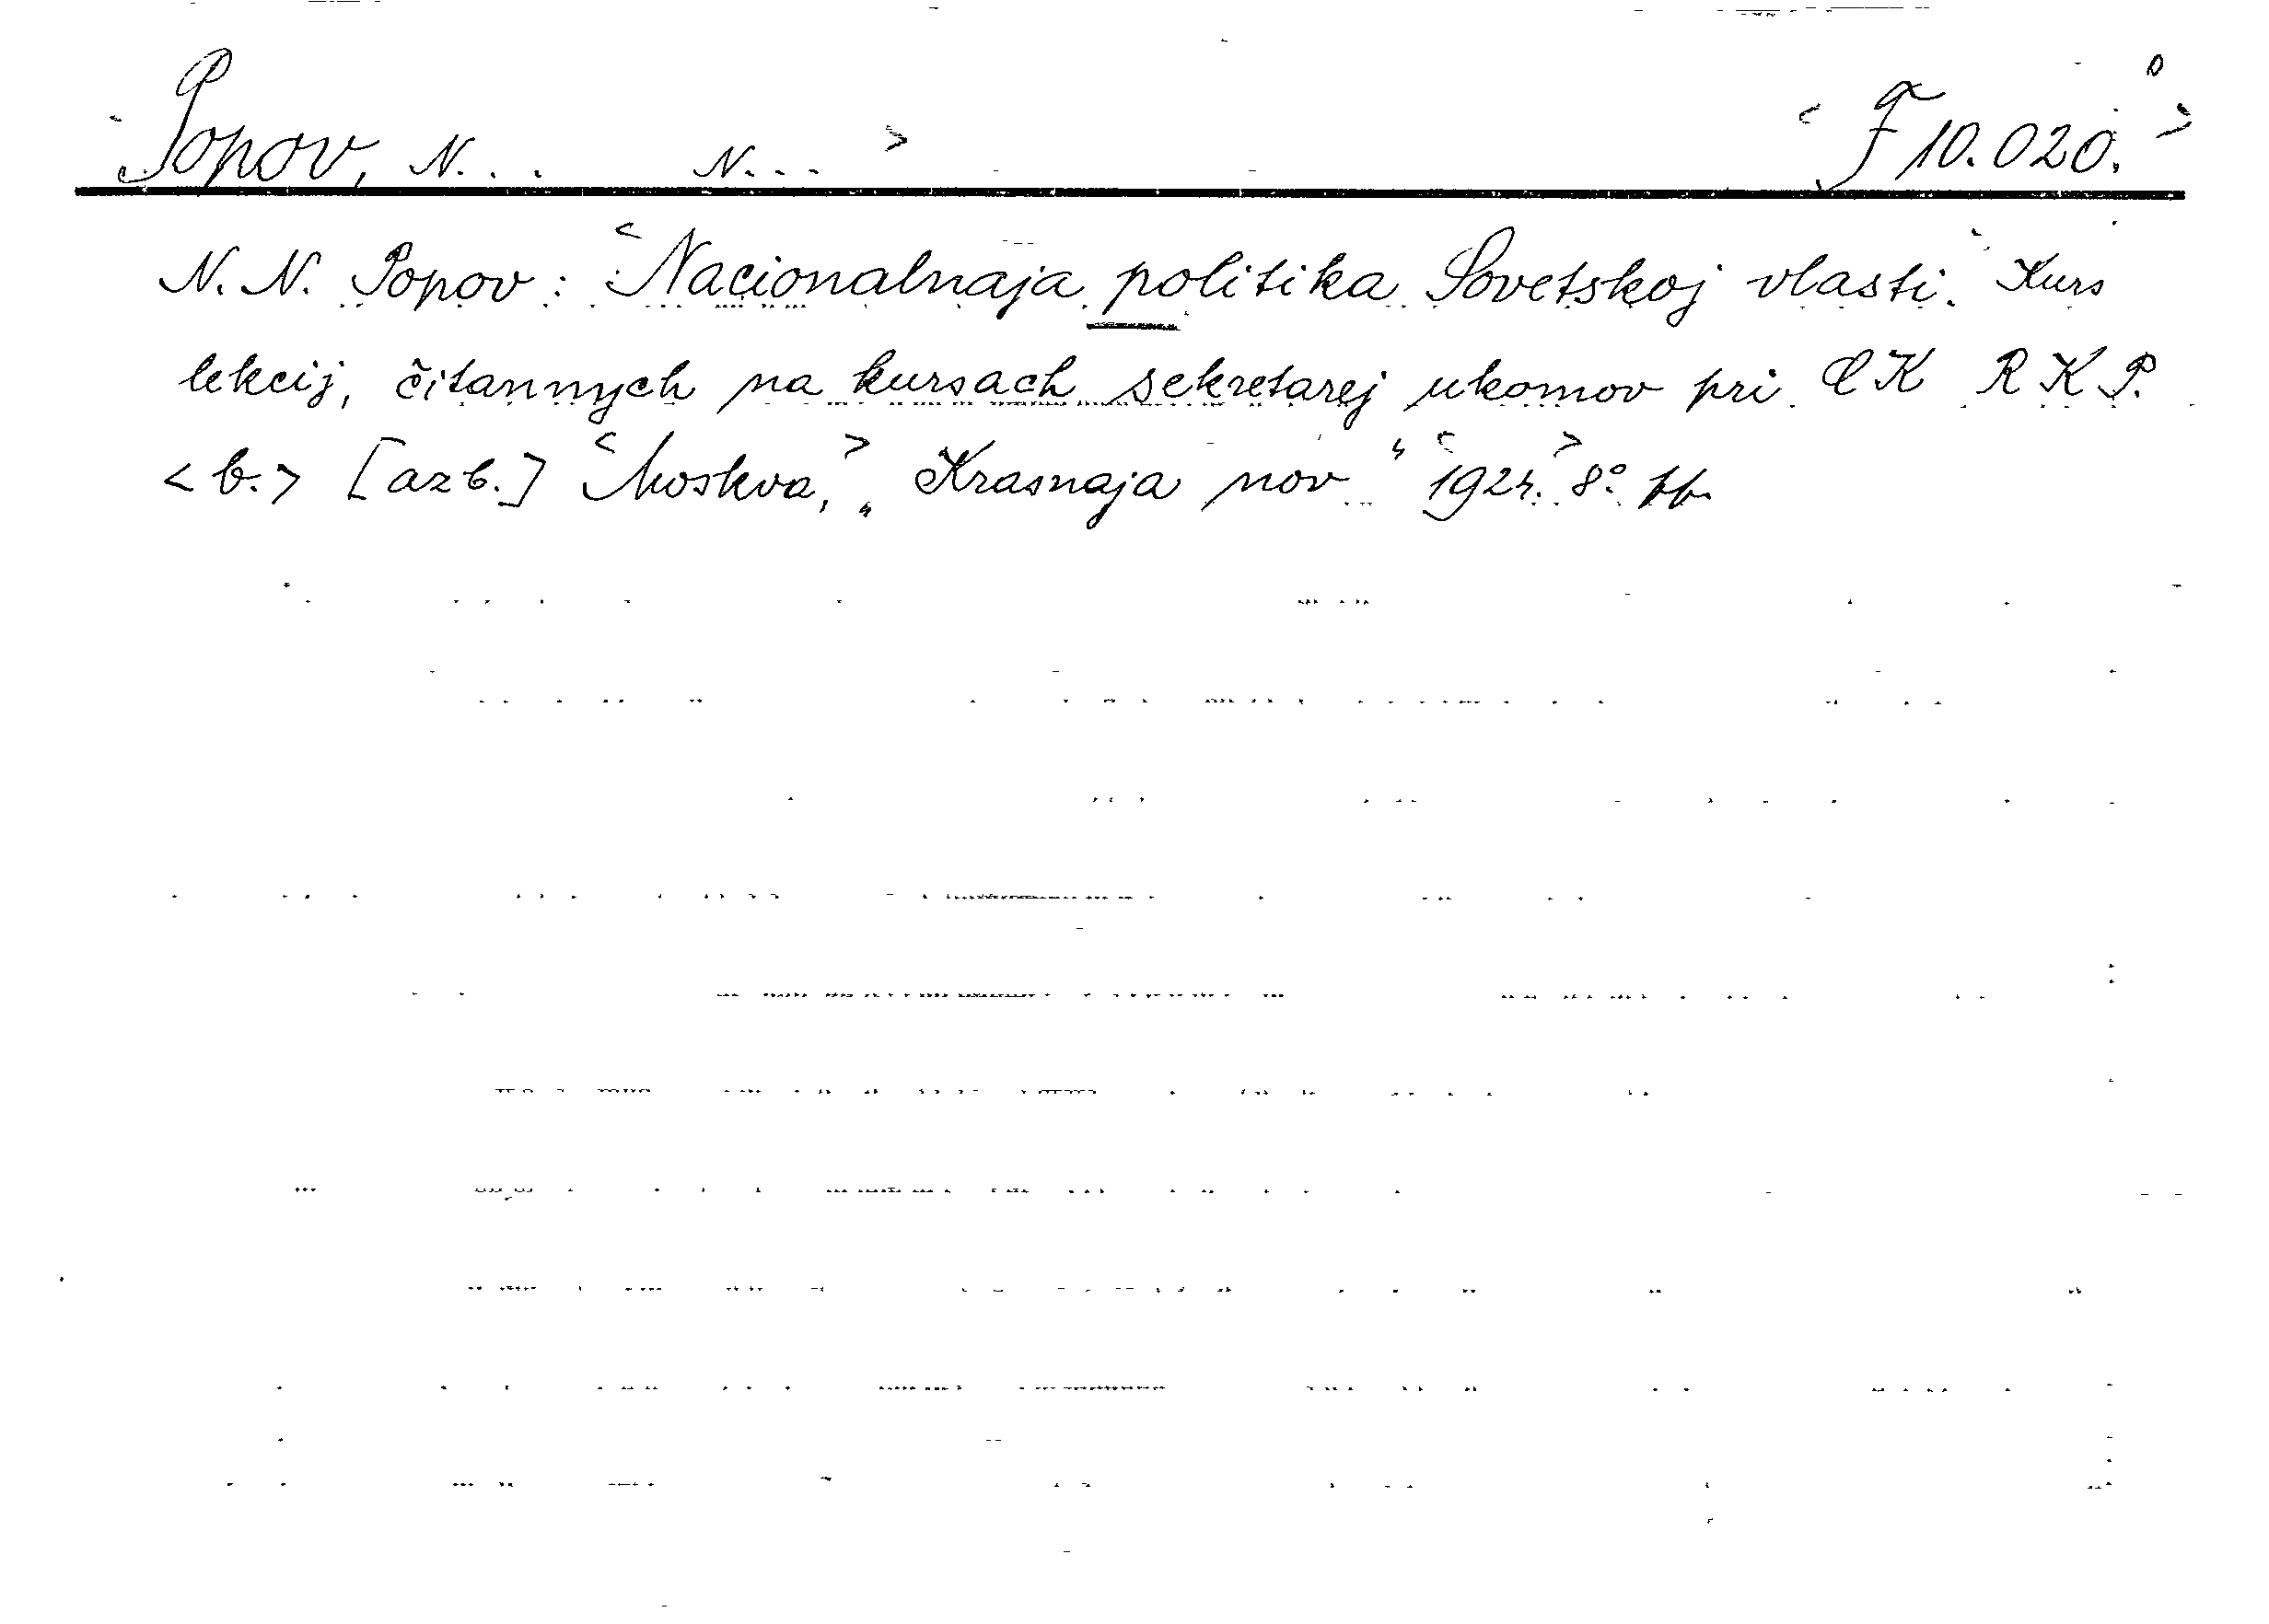 <Popov, N... N...> <F 10.020.>
N. N. Popov: <Nacionalnaja politika Sovetskoj vlasti. Kurs
lekcij, čitannych na kursach sekretarej ukomov pri CK RKP.
<b.> [azb.] <Moskva,> „Krasnaja nov" <1924.> 8°.